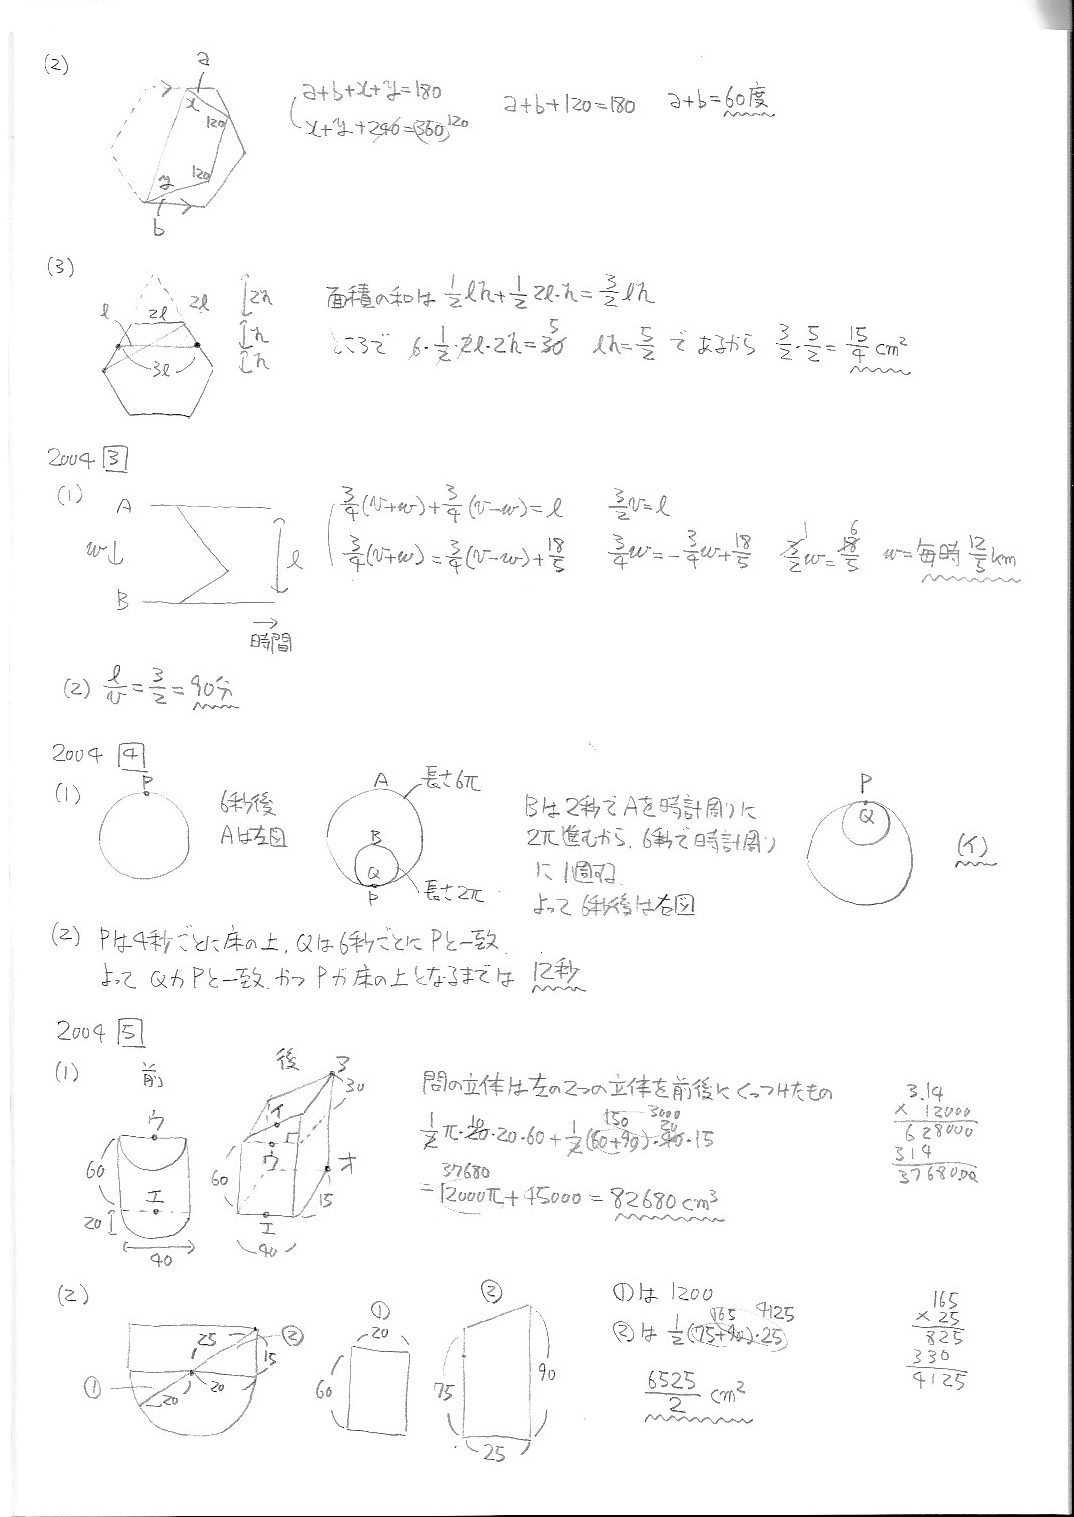 (2)
a
x
120
120
y
b
a+b+x+y=180
x+y+240=360 120
a+b+120=180 a+b=60度
(3)
l
2l
2l
3l
2h
h
h
面積の和は 1/2 lh+1/2 2l・h=3/2 lh
ところで 6・1/2・2l・2h=30 5 lh=5/2 であるから 3/2・5/2=15/4 cm²
2004 3
(1)
A
w↓
B
l
→
時間
3/4(v+w)+3/4(v-w)=l 3/2v=l
3/4(v+w)=3/4(v-w)+18/5 3/4w=-3/4w+18/5 3/2w=18/5 1 6 w=毎時12/5km
(2) l/v=3/2=90分
2004 4
(1)
P
6秒後
Aは左図
A
長さ6π
B
Q
P
長さ2π
Bは2秒でAを時計周りに
2π進むから、6秒で時計周り
に1周する
よって6秒後は右図
P
Q
(イ)
(2) Pは4秒ごとに床の上,Qは6秒ごとにPと一致
よってQがPと一致かつPが床の上となるまでは 12秒
2004 5
(1)
前
ウ
60
エ
20
40
後
ア
30
イ
ウ
オ
60
15
エ
40
問の立体は左の2つの立体を前後にくっつけたもの
1/2π・20・20・60+1/2(60+90)・40・15
150 3000 20
37680
=12000π+45000=82680cm³
3.14
× 12000
628000
314
3768000
(2)
25
②
15
①
20
20
①
20
60
②
75
90
25
①は1200
165 4125
②は 1/2(75+90)・25
6525/2 cm²
165
× 25
825
330
4125